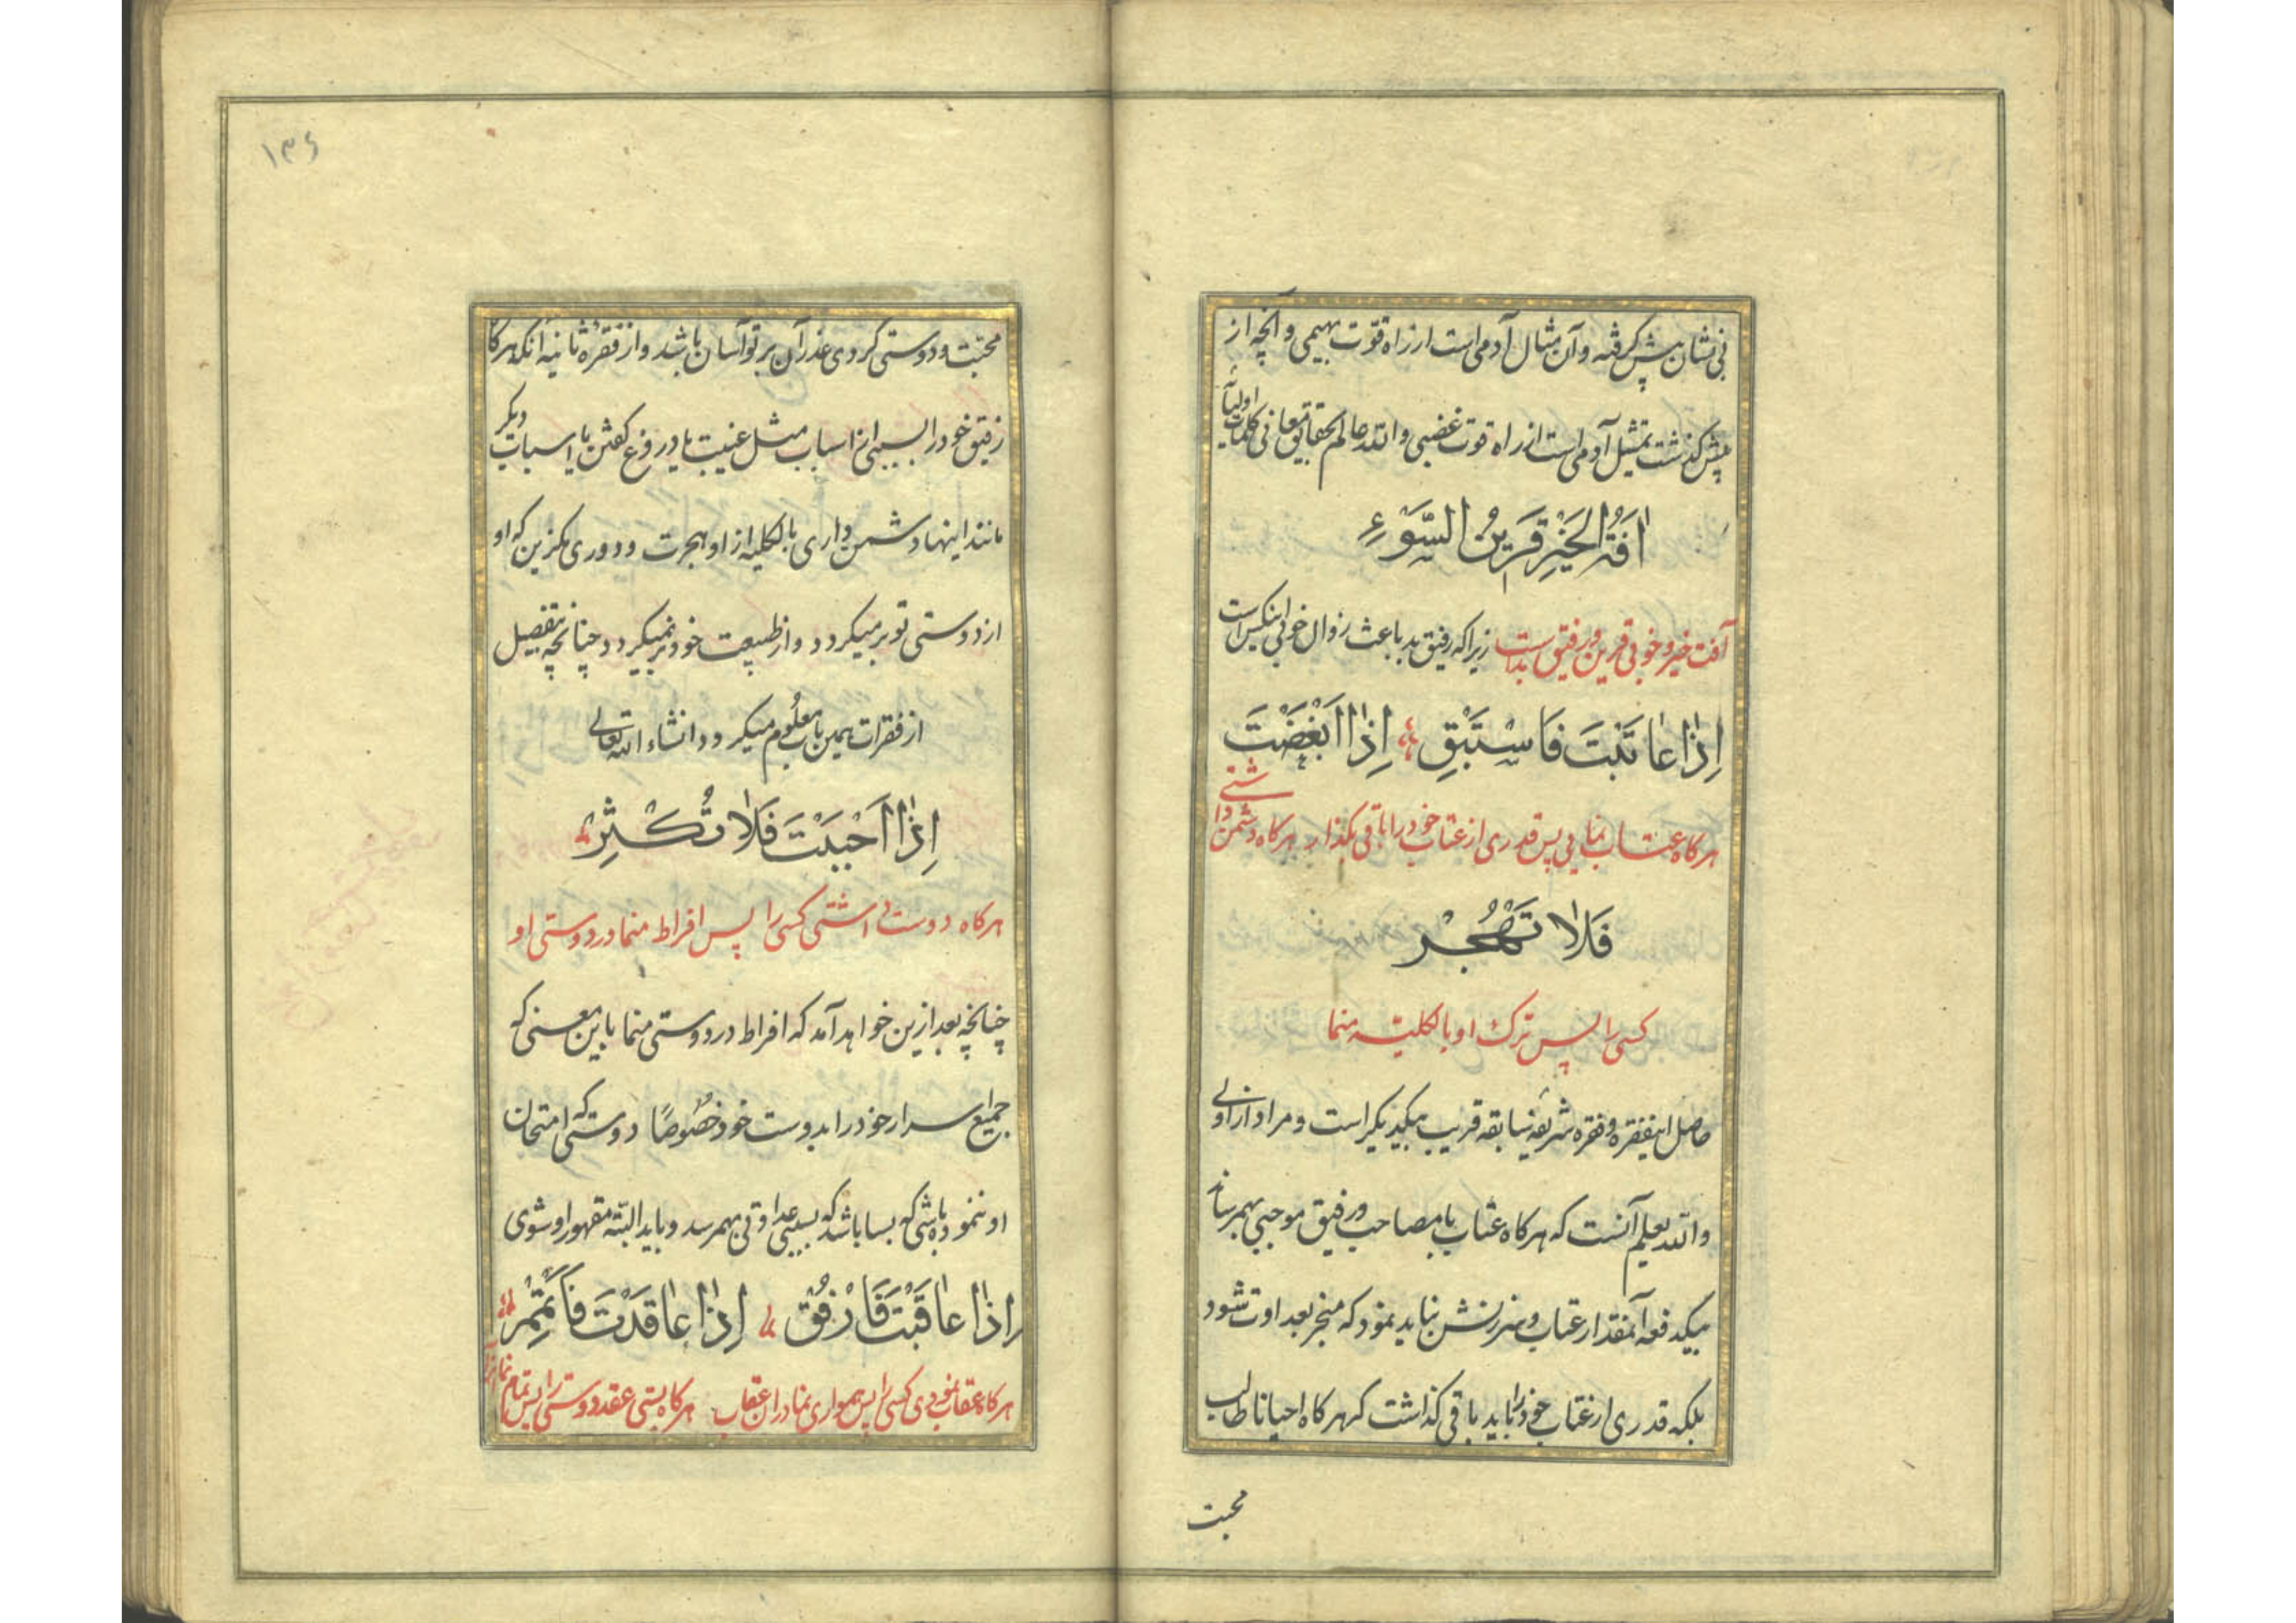 نی نشان پیش گرفته و آن مثال آدمی است از راه قوّت بهیمی و آنچه از
پیش گذشت تمثیل آدمی است از راه قوت غضبی والله عالم بحقایق معانی کلمات اولیائه
اٰفَةُ الْخَیْرِ قَرِیْنُ السَّوْءِ
آفت خیر و خوبی قرین و رفیق بد است زیرا که رفیق بد باعث زوال خوبی نیکس است
اِذٰا عٰاتَبْتَ فَاسْتَبْقِ اِذٰا اَبْغَضْتَ
هرگاه عتاب نمایی پس قدری از عتاب خود را باقی بگذار هرگاه دشمن داشتی
فَلاٰ تَهْجُرْ
کسی را پس ترک او بالکلیته منما
حاصل اینفقره و فقره شریفه سابقه قریب بیکدیگر است و مراد از اولی
والله یعلم آنست که هرگاه عتاب با مصاحب و رفیق موجبی بهمرساند
بیکدفعه آنمقدار عتاب و سرزنش نباید نمود که منجر بعداوت شود
بلکه قدری از عتاب خود را باید باقی گذاشت که هرگاه احیانا طالب
محبت
۱۳۶
محبّت و دوستی گردی عذر آن بر تو آسان باشد و از فقره ثانیه آنکه هرگا
رفیق خود را بسببی از اسباب مثل غیبت یا دروغ گفتن یا اسباب دیگر
مانند اینها دشمن داری بالکلیه از او هجرت و دوری مگزین که او
از دوستی تو بر میگردد و از طبیعت خود بر نمیگردد چنانچه بتفصیل
از فقرات همین باب معلوم میگردد انشاء الله تعالی
اِذٰا اَحْبَبْتَ فَلاٰ تُکْثِرْ
هرگاه دوست داشتی کسی را پس افراط منما در دوستی او
چنانچه بعد ازین خواهد آمد که افراط در دوستی منما باین معنی که
جمیع اسرار خود را بدوست خود خصُوصًا دوستی که امتحان
او ننموده باشی که بسا باشد که بسببی عداوتی بهمرسد و باید البتّه مقهور او شوی
اِذٰا عٰاقَبْتَ فَارْفُقْ اِذٰا عٰاقَدْتَ فَاَتْمِمْ
هرگاه عقاب نمودی کسی را پس همواری نما در آن عقاب هرگاه بستی عقد دوستی را پس تمام نما آنرا